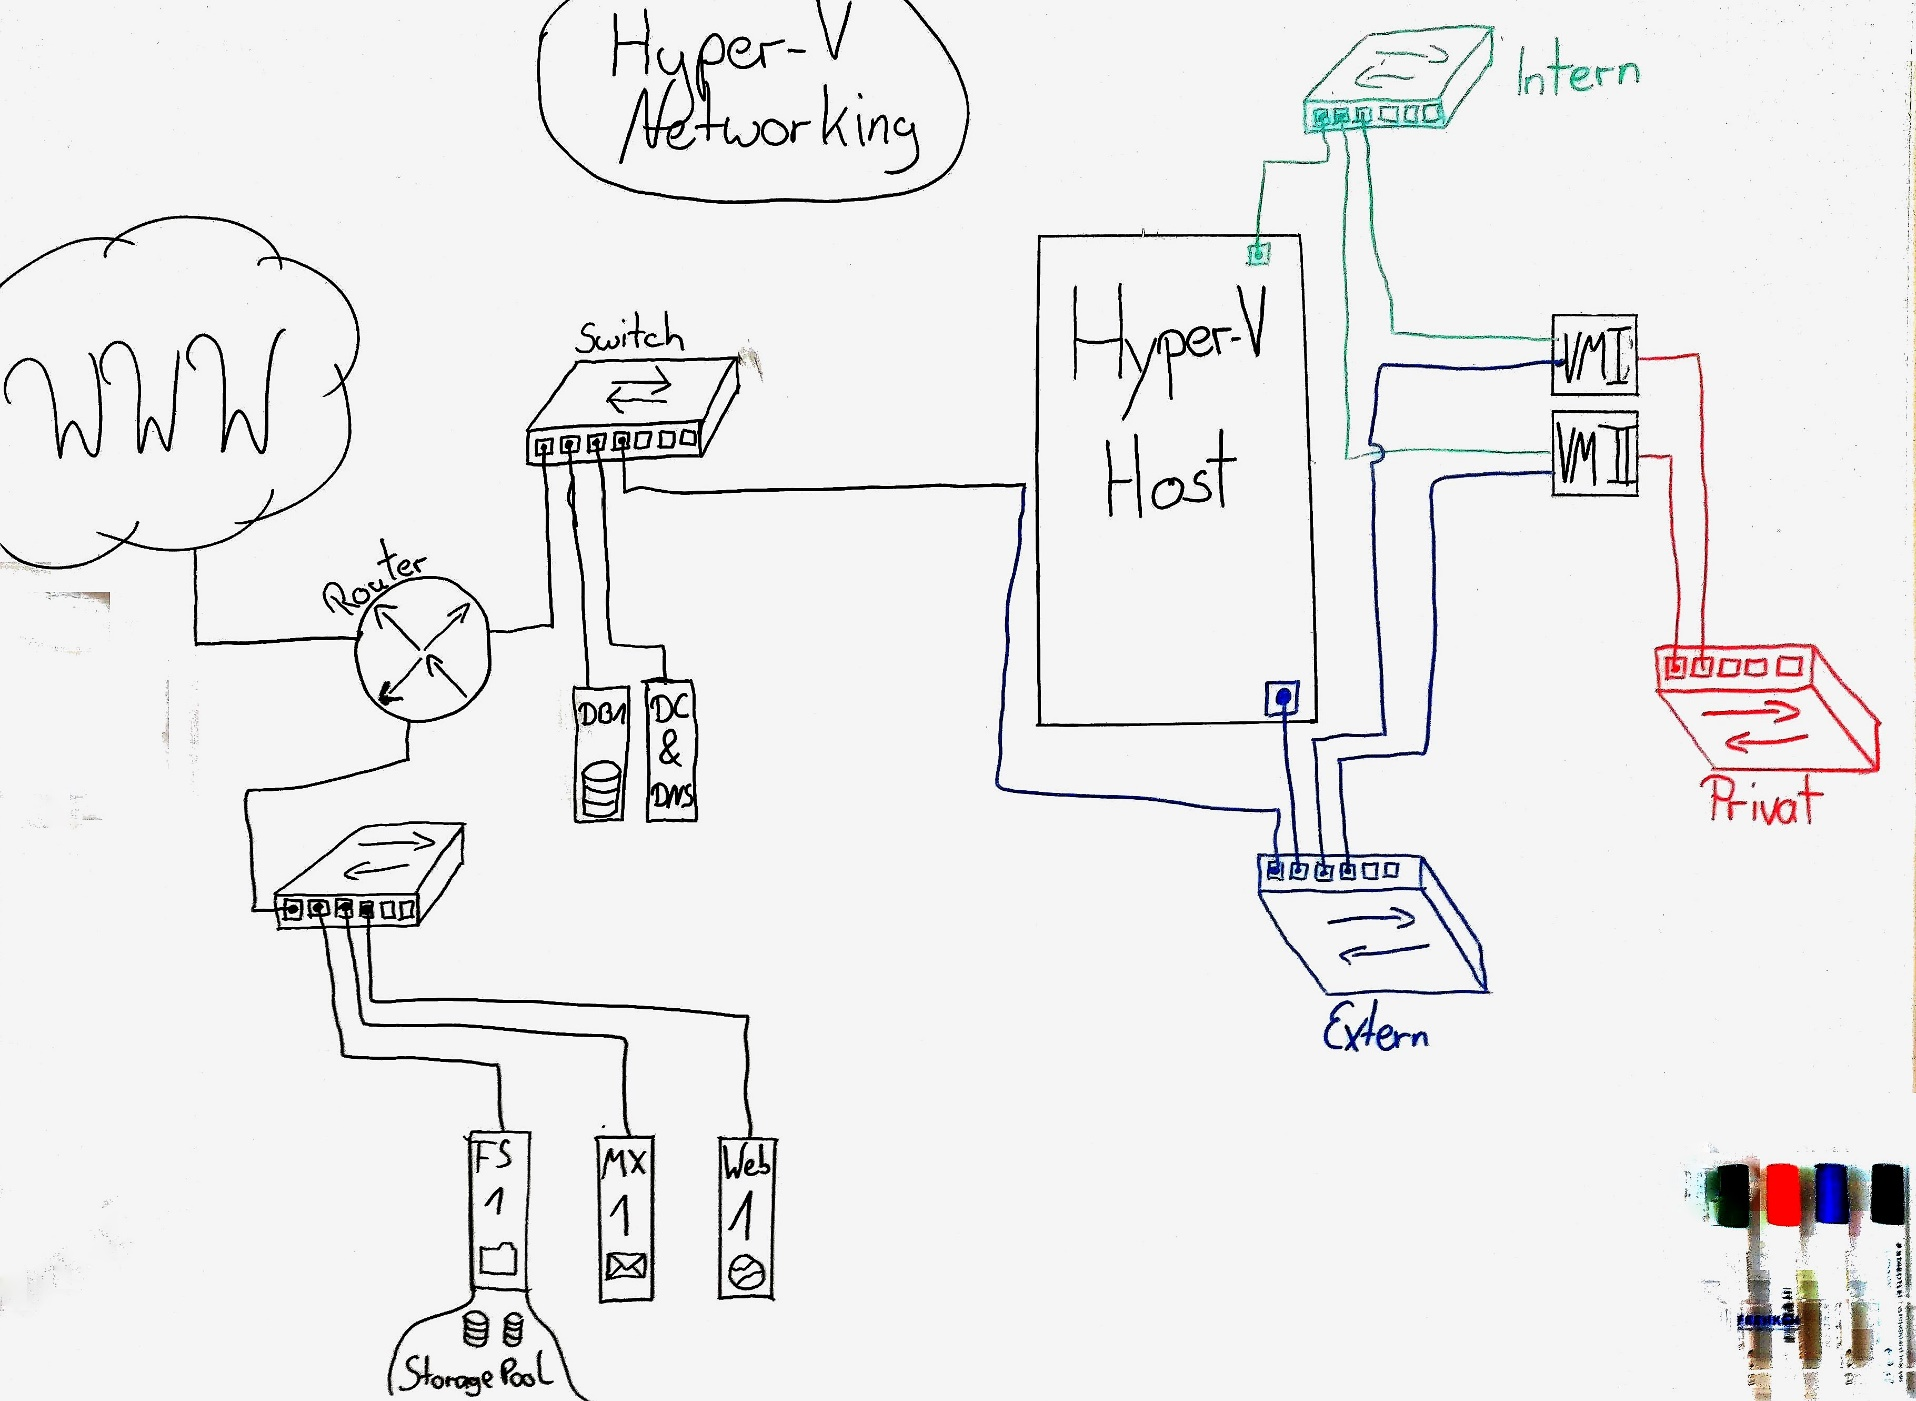 Hyper-V
Networking
Intern
WWW
Switch
Hyper-V
Host
VM I
VM II
Router
DB1
DC
&
DNS
Privat
Extern
FS
1
MX
1
Web
1
Storage Pool